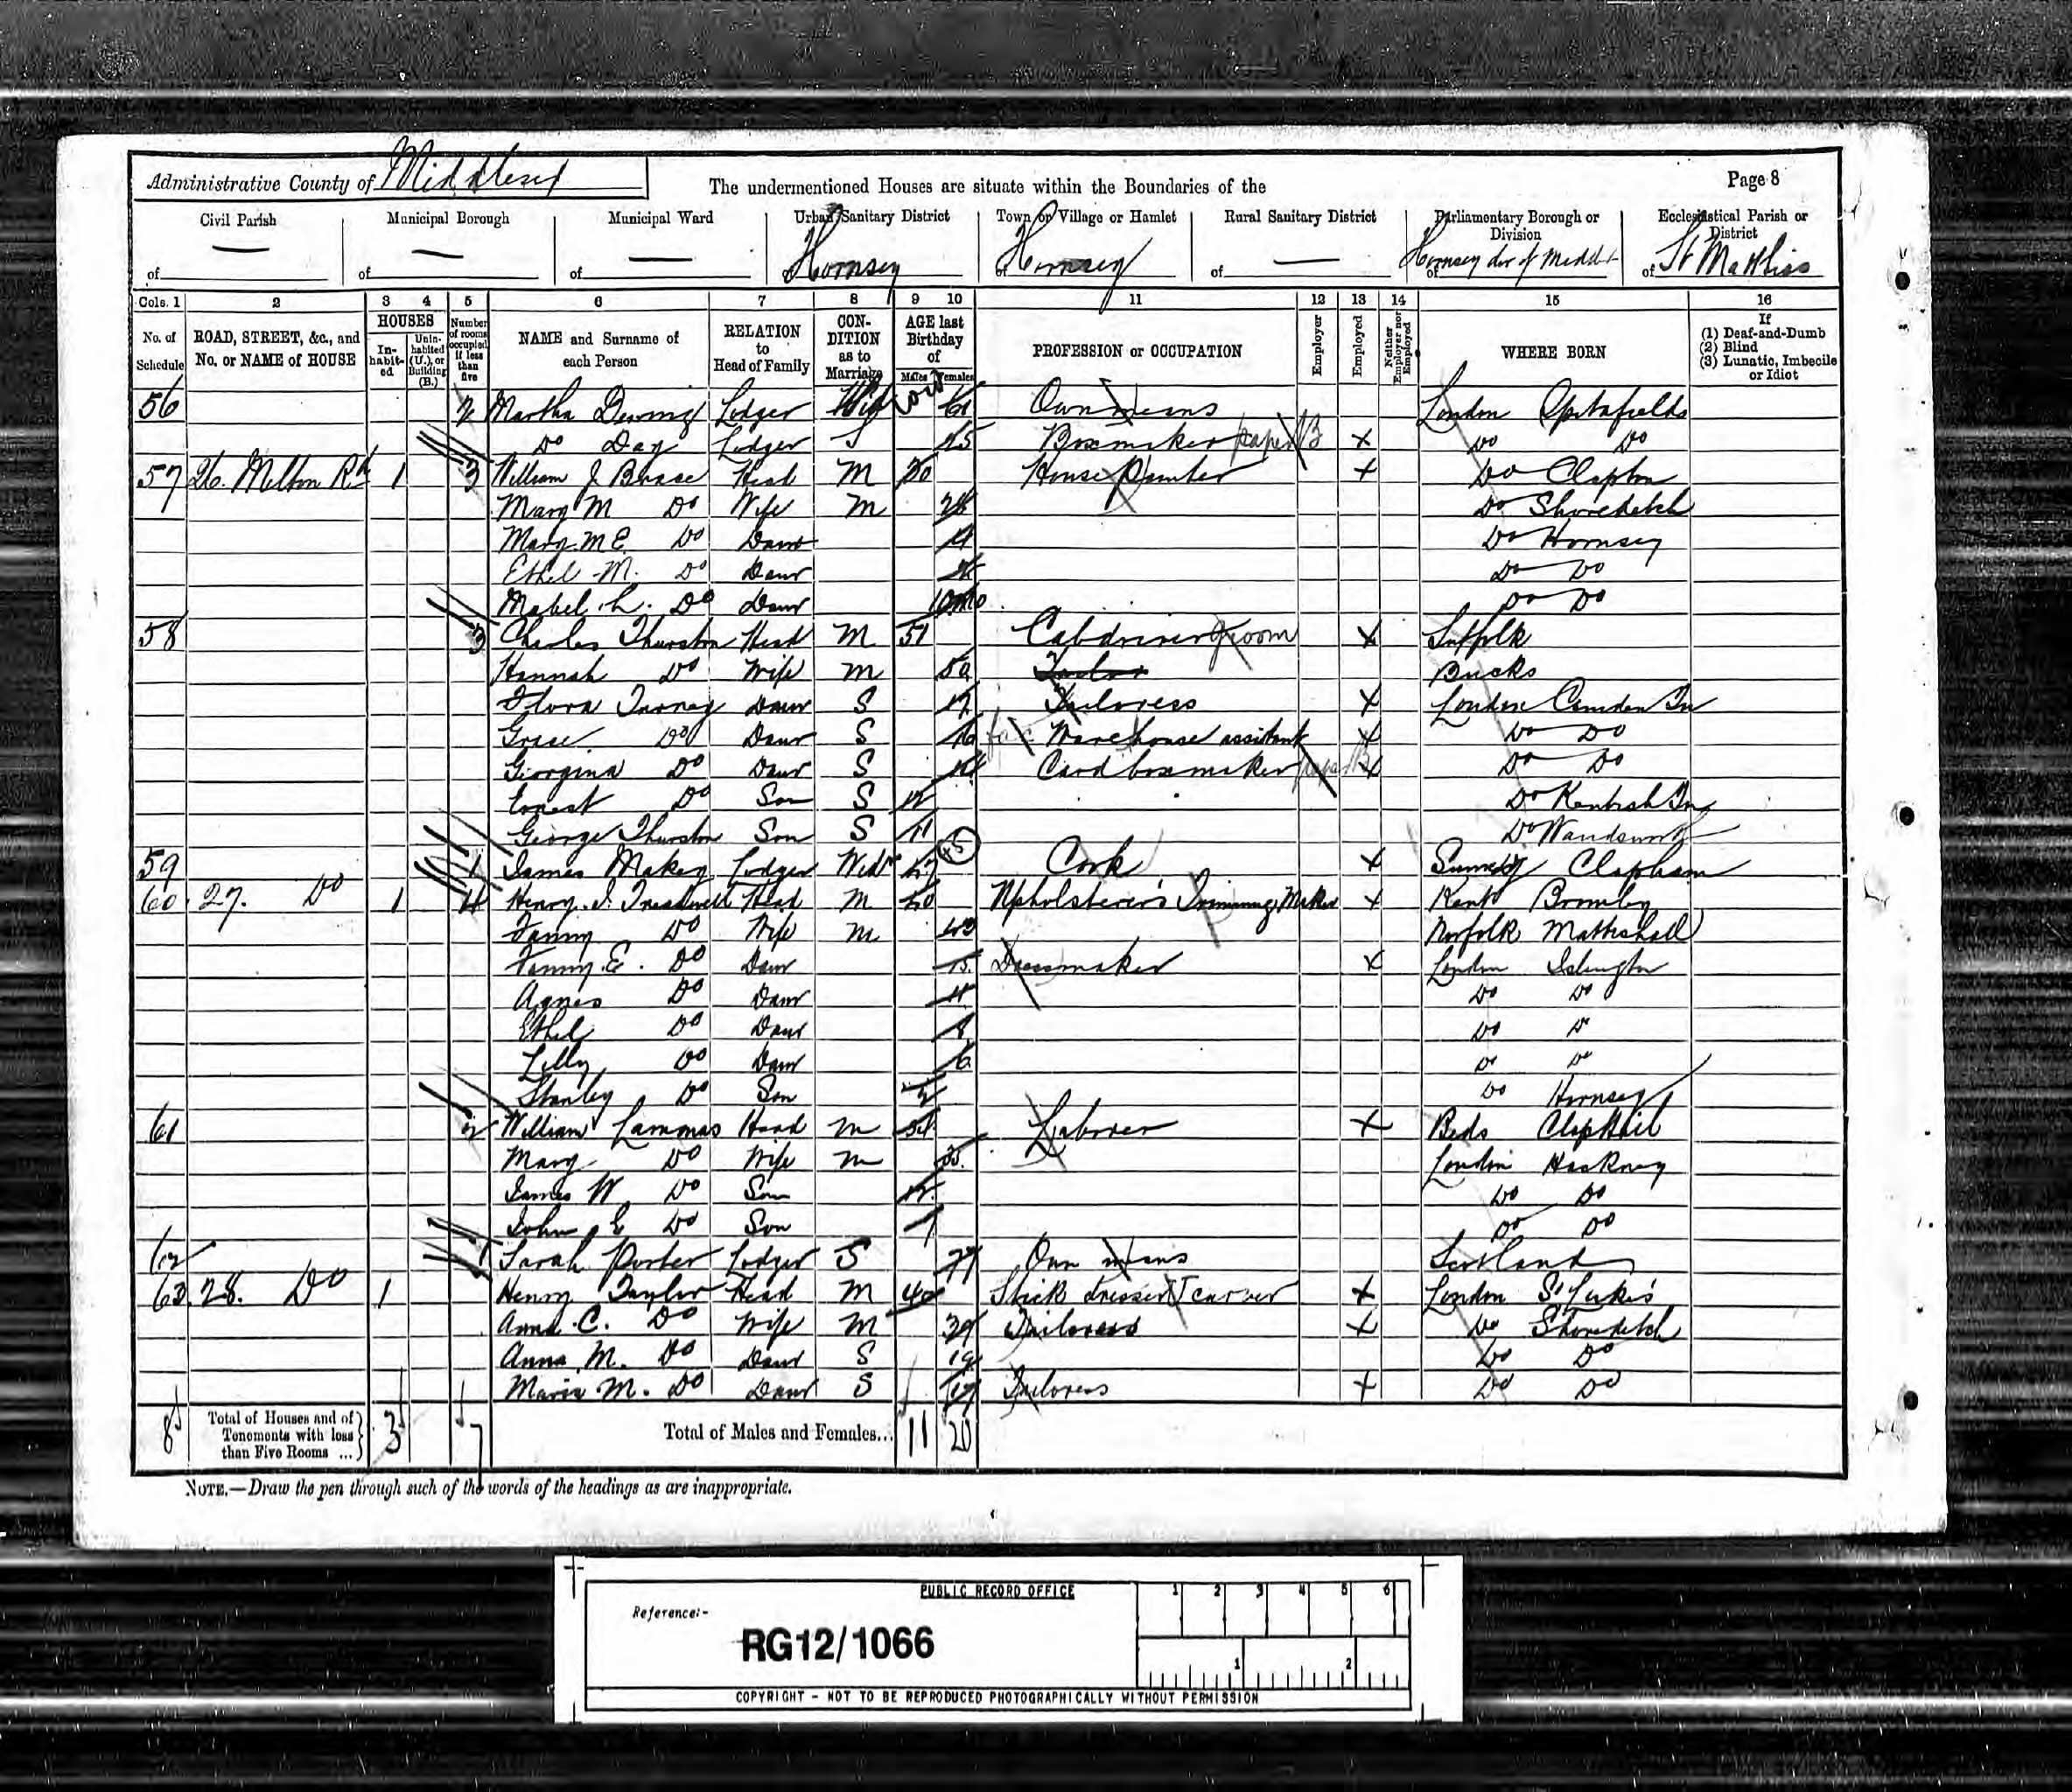 Administrative County of Middlesex
The undermentioned Houses are situate within the Boundaries of the
Page 8
Civil Parish Municipal Borough Municipal Ward Urban Sanitary District Town or Village or Hamlet Rural Sanitary District Parliamentary Borough or Division Ecclesiastical Parish or District
of — of — of — Hornsey of Hornsey of — of Hornsey div of Middx of St Matthias
Cols. 1 2 3 4 5 6 7 8 9 10 11 12 13 14 15 16
No. of Schedule ROAD, STREET, &c., and No. or NAME of HOUSE HOUSES Inhabited Uninhabited (U.), or Building (B.) Number of rooms occupied if less than five NAME and Surname of each Person RELATION to Head of Family CONDITION as to Marriage AGE last Birthday of Males Females PROFESSION or OCCUPATION Employer Employed Neither Employer nor Employed WHERE BORN If (1) Deaf-and-Dumb (2) Blind (3) Lunatic, Imbecile or Idiot
56 2 Martha Lodger Wid 61 Own means London Spitafields
Do Day Lodger S 45 Boxmaker paper B X Do Do
57 26. Melton Rd 1 3 William J Head M 30 House Painter X Do Clapton
Mary M Do Wife M 28 Do Shoreditch
Mary M E Do Daur Do Hornsey
Ethel M. Do Daur Do Do
Mabel L. Do Daur 10mo Do Do
58 3 Charles Thurston Head M 51 Cabdriver groom X Suffolk
Hannah Do Wife M 50 Bucks
Flora Daur S 17 Tailoress X London Camden Tn
Grace Do Daur S 16 Warehouse assistant X Do Do
Georgina Do Daur S 14 Cardboxmaker paper B X Do Do
Ernest Do Son S 12 Do Kentish Tn
George Thurston Son S 11 Do Wandsworth
59 1 James Makey Lodger Widr 47 45 Cook X Surrey Clapham
60 27. Do 1 4 Henry J. Treadwell Head M 40 Upholsterer's Trimming Maker X Kent Bromley
Fanny Do Wife M 43 Norfolk Mattishall
Fanny E. Do Daur 15 Dressmaker X London Islington
Agnes Do Daur 11 Do Do
Ethel Do Daur 8 Do Do
Lilly Do Daur 6 Do Do
Stanley Do Son 2 Do Hornsey
61 2 William Lammas Head M 34 Labourer X Beds Clophill
Mary Do Wife M 35 London Hackney
James W Do Son 12 Do Do
John E Do Son 7 Do Do
62 1 Sarah Porter Lodger S 77 Own means Scotland
63. 28. Do 1 Henry Taylor Head M 40 Stick dresser carver X London St Luke's
Anna C. Do Wife M 39 Tailoress X Do Shoreditch
Anna M. Do Daur S 19 Do Do
Maria M. Do Daur S 17 Tailoress X Do Do
8 Total of Houses and of Tenements with less than Five Rooms ... 3 7 Total of Males and Females... 11 20
NOTE.—Draw the pen through such of the words of the headings as are inappropriate.
PUBLIC RECORD OFFICE
1 2 3 4 5 6
Reference:-
RG12/1066
1 2
COPYRIGHT - NOT TO BE REPRODUCED PHOTOGRAPHICALLY WITHOUT PERMISSION